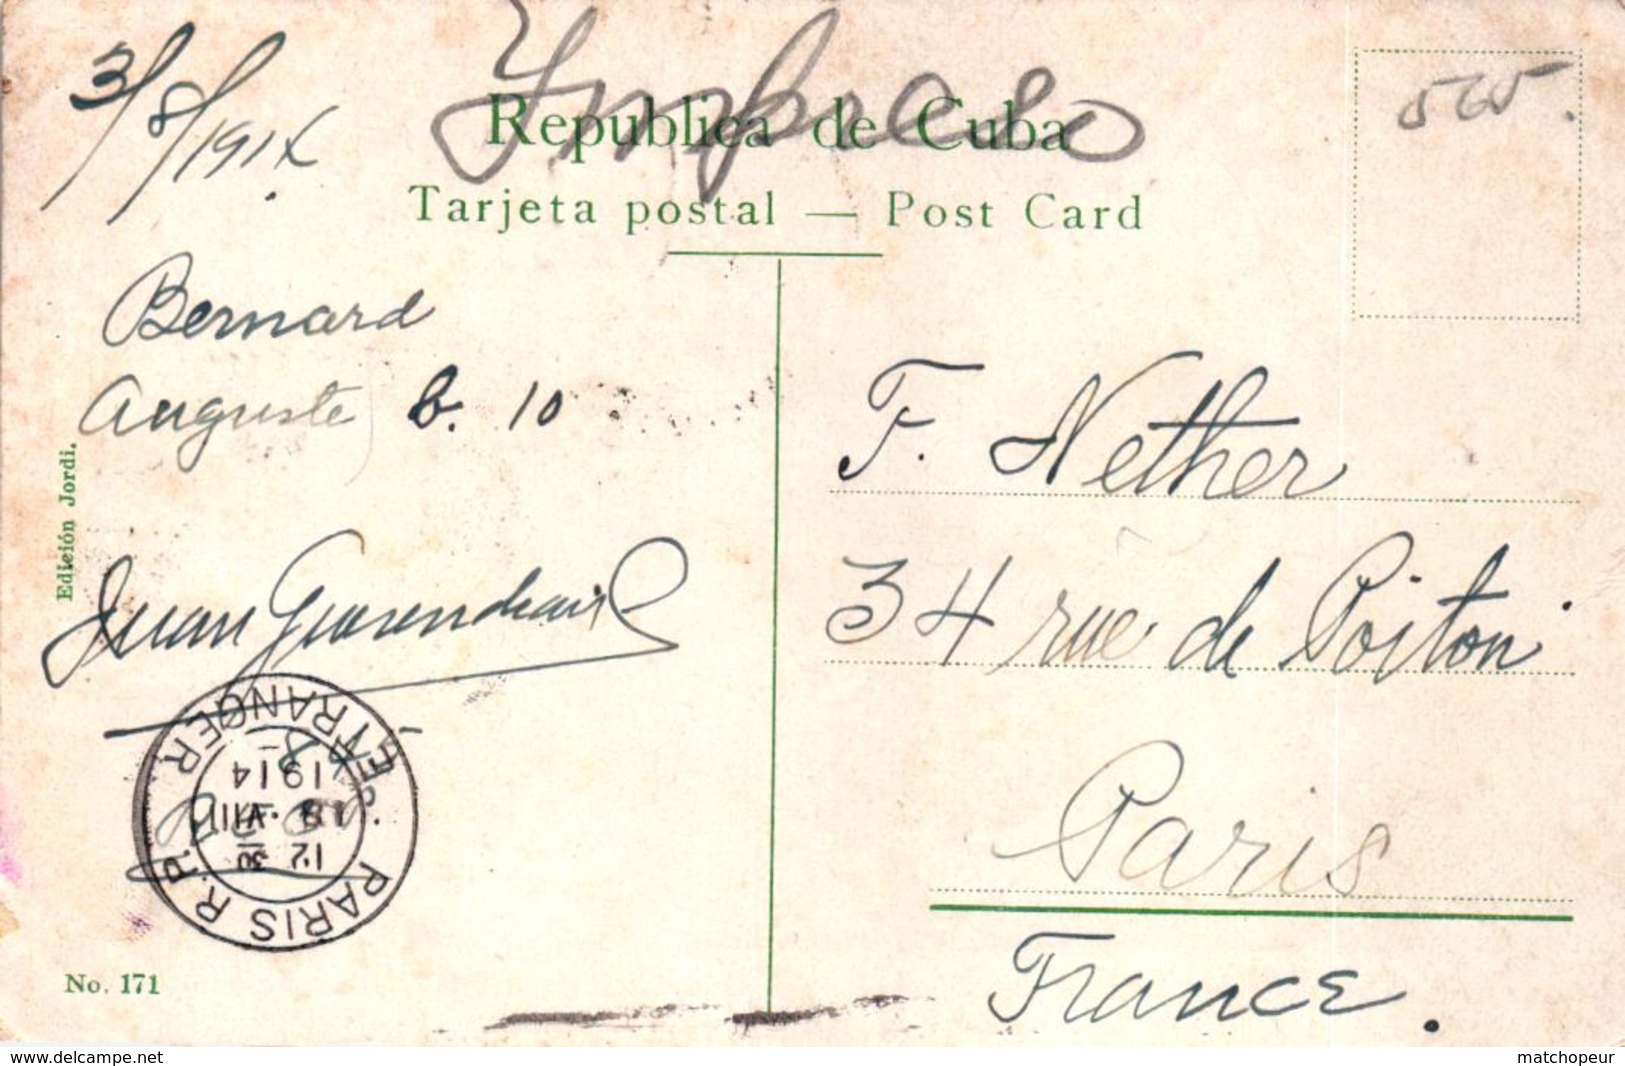 3/8/191X.
Impreso
565.
Republica de Cuba
Tarjeta postal — Post Card
Bernard
Auguste b. 10
Juan
Edición Jordi.
F. Nether
34 rue de Poitou
Paris
France.
PARIS R.P. ETRANGER
12 30
VIII
1914
No. 171
delcampe.net
matchopeur